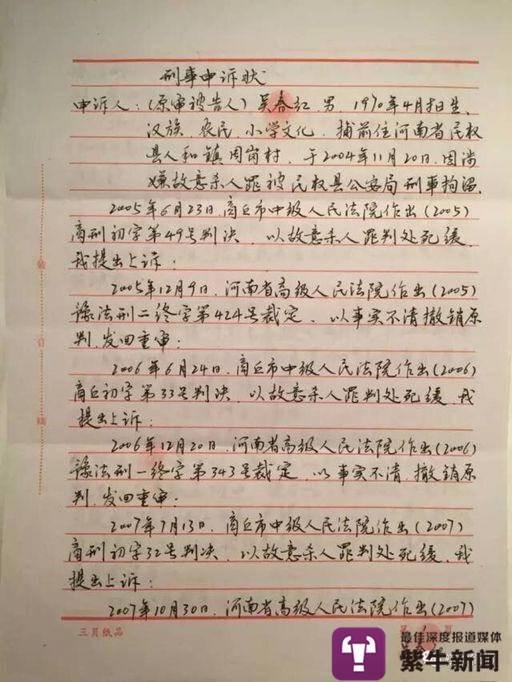 刑事申诉状
申诉人：(原审被告人）吴春红，男，1970年4月生，
汉族，农民，小学文化，捕前住河南省民权
县人和镇周岗村，于2004年11月20日，因涉
嫌故意杀人罪被民权县公安局刑事拘留。
2005年6月23日，商丘市中级人民法院作出(2005)
商刑初字第49号判决，以故意杀人罪判处死缓，
我提出上诉；
2005年12月9日，河南省高级人民法院作出(2005)
豫法刑二终字第424号裁定，以事实不清撤销原
判，发回重审；
2006年6月24日，商丘市中级人民法院作出(2006)
商丘初字第33号判决，以故意杀人罪判处死缓，我
提出上诉；
2006年12月20日，河南省高级人民法院作出(2006)
豫法刑一终字第343号裁定，以事实不清，撤销原
判，发回重审；
2007年7月13日，商丘市中级人民法院作出(2007)
商刑初字32号判决，以故意杀人罪判处死缓，我
提出上诉；
2007年10月30日，河南省高级人民法院作出(2007)
三贝纸品
最佳深度报道媒体
紫牛新闻